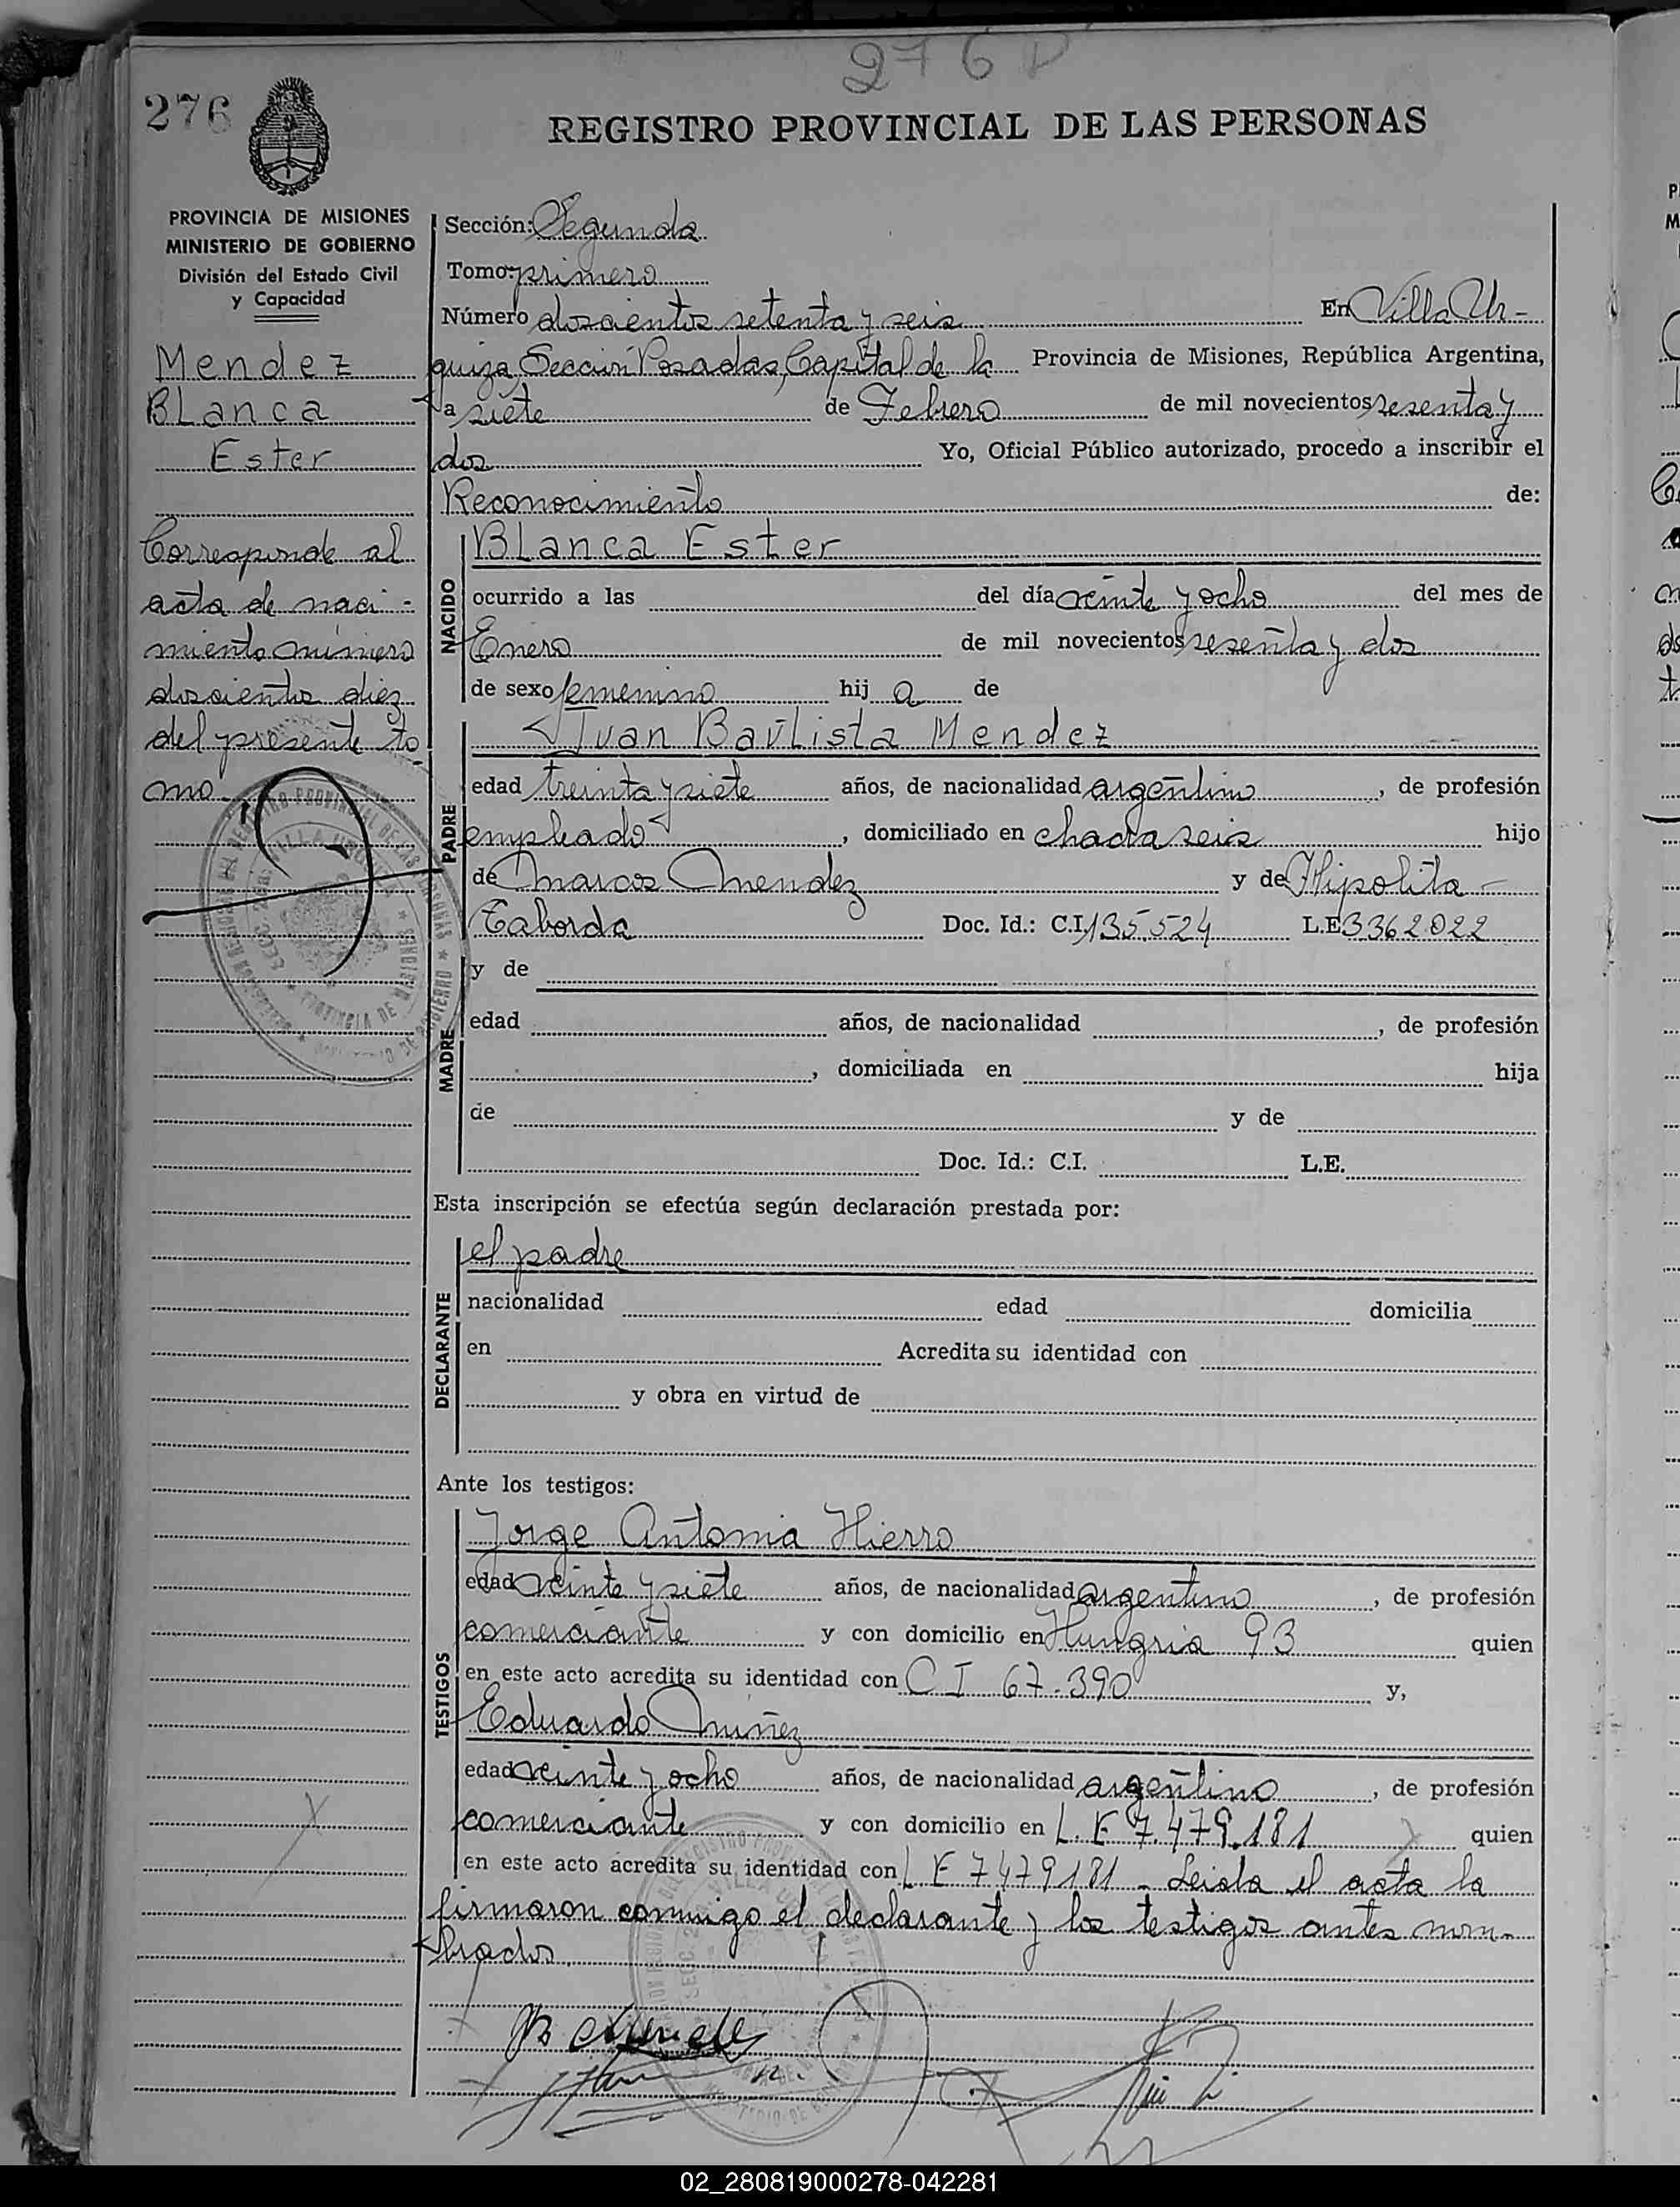 276 D
276
REGISTRO PROVINCIAL DE LAS PERSONAS
PROVINCIA DE MISIONES
MINISTERIO DE GOBIERNO
División del Estado Civil
y Capacidad
Mendez
Blanca
Ester
Corresponde al
acta de naci-
miento número
doscientos diez
del presente to
mo
Sección: Segunda
Tomo: primero
Número doscientos setenta y seis En Villa Ur-
quiza, Sección Posadas, Capital de la Provincia de Misiones, República Argentina,
a siete de Febrero de mil novecientos sesenta y
dos Yo, Oficial Público autorizado, procedo a inscribir el
Reconocimiento de:
NACIDO
Blanca Ester
ocurrido a las del día veinte y ocho del mes de
Enero de mil novecientos sesenta y dos
de sexo femenino hij a de
PADRE
Juan Bautista Mendez
edad treinta y siete años, de nacionalidad argentino, de profesión
empleado, domiciliado en chacra seis hijo
de Marcos Mendez y de Hipolita
Taborda Doc. Id.: C.I. 135.524 L.E 3362022
MADRE
y de
edad años, de nacionalidad , de profesión
, domiciliada en hija
de y de
Doc. Id.: C.I. L.E.
Esta inscripción se efectúa según declaración prestada por:
DECLARANTE
el padre
nacionalidad edad domicilia
en Acredita su identidad con
y obra en virtud de
Ante los testigos:
TESTIGOS
Jorge Antonia Hierro
edad veinte y siete años, de nacionalidad argentino, de profesión
comerciante y con domicilio en Hungria 93 quien
en este acto acredita su identidad con C I 67.390 y,
Eduardo Nuñez
edad veinte y ocho años, de nacionalidad argentino, de profesión
comerciante y con domicilio en L.E 7.479.181 quien
en este acto acredita su identidad con L E 7479181 - Leida el acta la
firmaron conmigo el declarante y los testigos antes nom-
brados
02_280819000278-042281